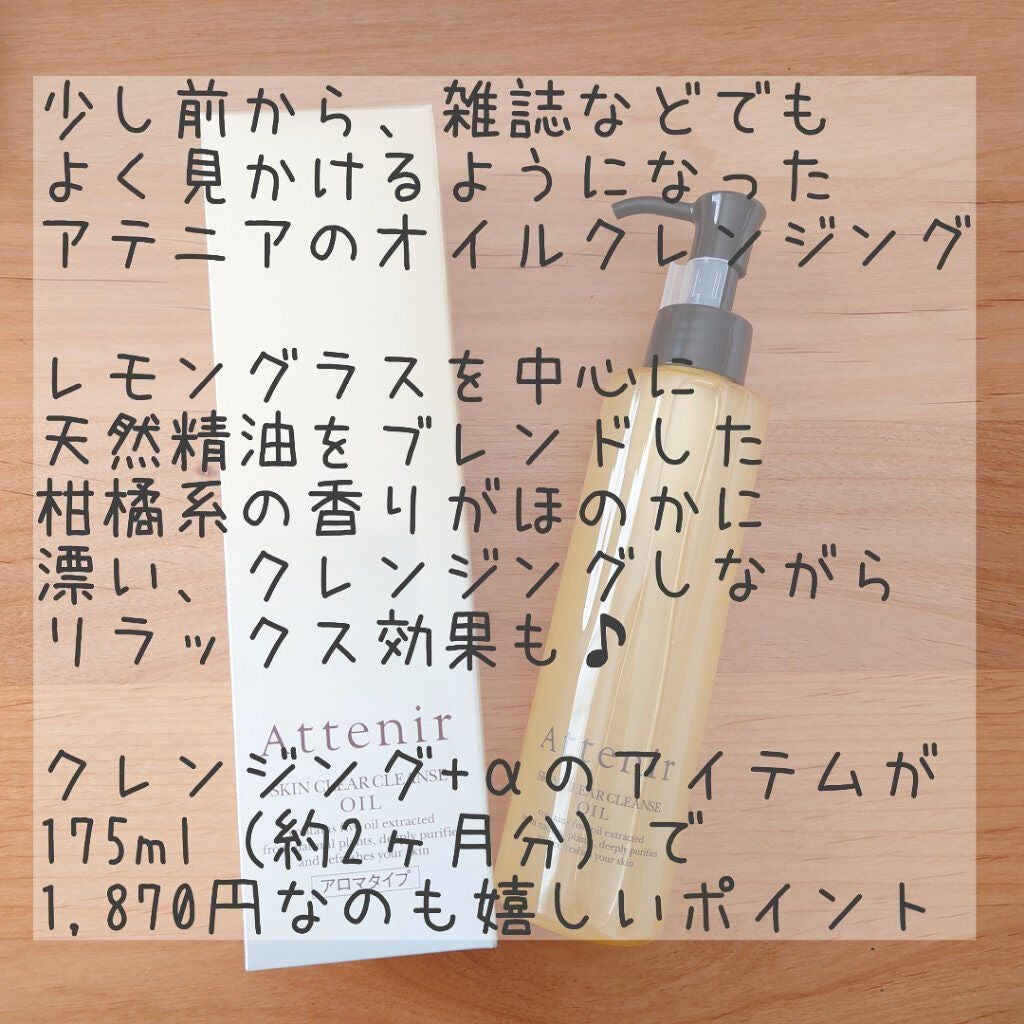 少し前から、雑誌などでも
よく見かけるようになった
アテニアのオイルクレンジング
レモングラスを中心に
天然精油をブレンドした
柑橘系の香りがほのかに
漂い、クレンジングしながら
リラックス効果も♪
クレンジング+αのアイテムが
175ml（約2ヶ月分）で
1,870円なのも嬉しいポイント
Attenir
SKIN CLEAR CLEANSE
OIL
contains five oil extracted
from natural plants, deeply purifies
and refreshes your skin
アロマタイプ
Attenir
SKIN CLEAR CLEANSE
OIL
contains five oil extracted
from natural plants, deeply purifies
refreshes your skin